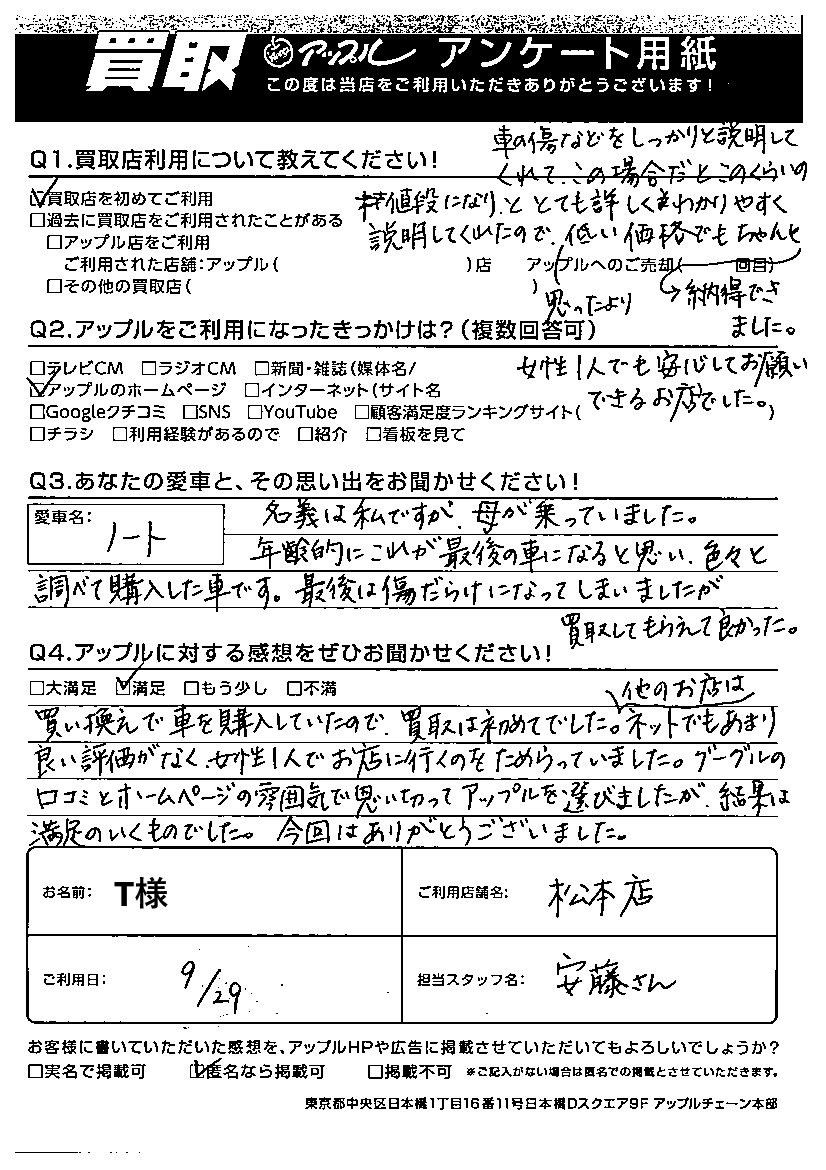 買取 アップル アンケート用紙
この度は当店をご利用いただきありがとうございます！
Q1.買取店利用について教えてください！
車の傷などをしっかりと説明して
くれて、この場合だとこのくらいの
値段になり、と とても詳しくわかりやすく
説明してくれたので、低い価格でもちゃんと
思ったより
→納得でき
ました。
☑買取店を初めてご利用
□過去に買取店をご利用されたことがある
□アップル店をご利用
ご利用された店舗：アップル( )店 アップルへのご売却( 回目)
□その他の買取店( )
Q2.アップルをご利用になったきっかけは？（複数回答可）
女性1人でも安心してお願い
できるお店でした。
□テレビCM □ラジオCM □新聞・雑誌(媒体名/
☑アップルのホームページ □インターネット(サイト名
□Googleクチコミ □SNS □YouTube □顧客満足度ランキングサイト( )
□チラシ □利用経験があるので □紹介 □看板を見て
Q3.あなたの愛車と、その思い出をお聞かせください！
愛車名： ノート
名義は私ですが、母が乗っていました。
年齢的にこれが最後の車になると思い、色々と
調べて購入した車です。最後は傷だらけになってしまいましたが
買取してもらえて良かった。
Q4.アップルに対する感想をぜひお聞かせください！
□大満足 ☑満足 □もう少し □不満
他のお店は
買い換えで車を購入していたので、買取は初めてでした。ネットでもあまり
良い評価がなく、女性1人でお店に行くのをためらっていました。グーグルの
口コミとホームページの雰囲気で思い切ってアップルを選びましたが、結果は
満足のいくものでした。今回はありがとうございました。
お名前： T様
ご利用店舗名： 松本店
ご利用日： 9/29
担当スタッフ名： 安藤さん
お客様に書いていただいた感想を、アップルHPや広告に掲載させていただいてもよろしいでしょうか？
□実名で掲載可 ☑匿名なら掲載可 □掲載不可 ※ご記入がない場合は匿名での掲載とさせていただきます。
東京都中央区日本橋1丁目16番11号日本橋Dスクエア9F アップルチェーン本部